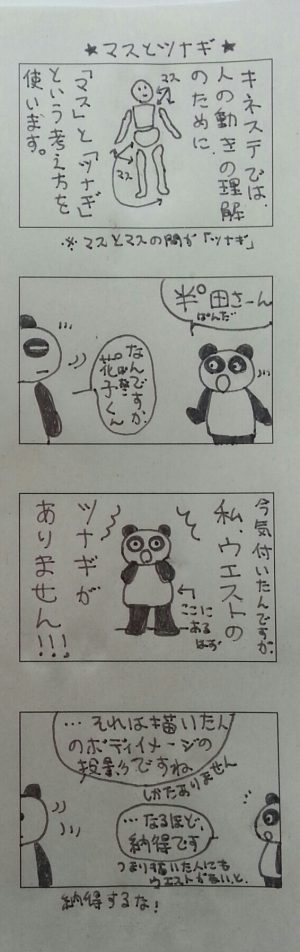 ★マスとツナギ★
キネステでは、
人の動きの理解
のために、
マス
マス
「マス」と「ツナギ」
という考え方を
使います。
※マスとマスの間が「ツナギ」
半゜田さーん
ぱんだ
なんですか、
花子くん
今気付いたんですが、
私、ウエストの
ツナギが
ありません!!!
ここに
ある
はず
…それは描いた人
のボディイメージの
投影ですね
しかたありません
…なるほど、
納得です
つまり描いた人にも
ウエストがないと、
納得するな!